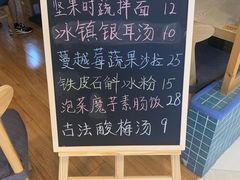 坚果时蔬拌面 12
冰镇银耳汤 10
蔓越莓蔬果沙拉 25
铁皮石斛冰粉 15
泡菜魔芋素肠饭 28
古法酸梅汤 9